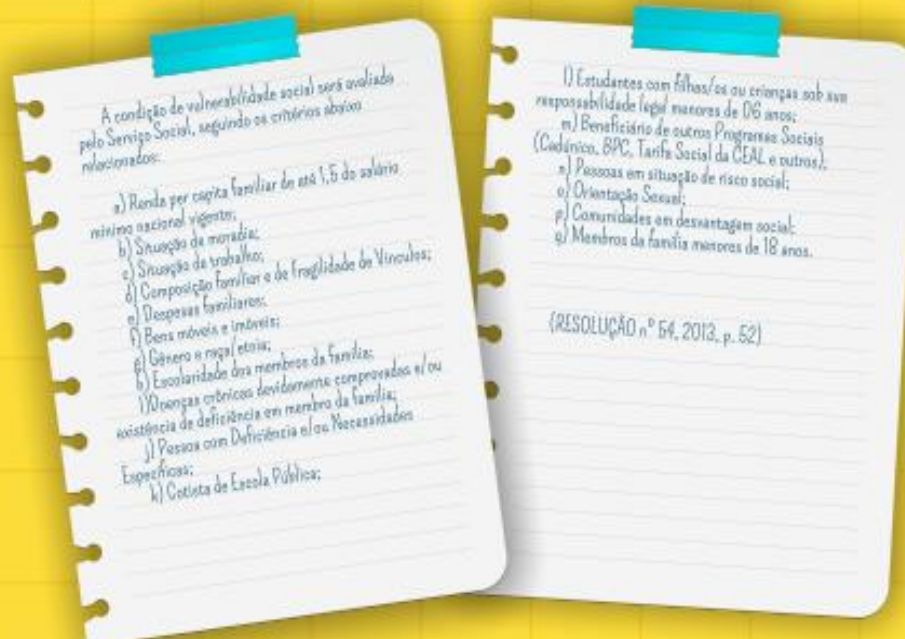 A condição de vulnerabilidade social será avaliada
pelo Serviço Social, seguindo os critérios abaixo
relacionados:
a) Renda per capita familiar de até 1,5 do salário
mínimo nacional vigente;
b) Situação de moradia;
c) Situação de trabalho;
d) Composição familiar e de Fragilidade de Vínculos;
e) Despesas familiares;
f) Bens móveis e imóveis;
g) Gênero e raça/etnia;
h) Escolaridade dos membros da família;
i) Doenças crônicas devidamente comprovadas e/ou
existência de deficiência em membro da família;
j) Pessoa com Deficiência e/ou Necessidades
Específicas;
k) Cotista de Escola Pública;
l) Estudantes com filhas/os ou crianças sob sua
responsabilidade legal menores de 06 anos;
m) Beneficiário de outros Programas Sociais
(Cadúnico, BPC, Tarifa Social da CEAL e outros);
n) Pessoas em situação de risco social;
o) Orientação Sexual;
p) Comunidades em desvantagem social;
q) Membros da família menores de 18 anos.
(RESOLUÇÃO nº 54, 2013, p. 52)